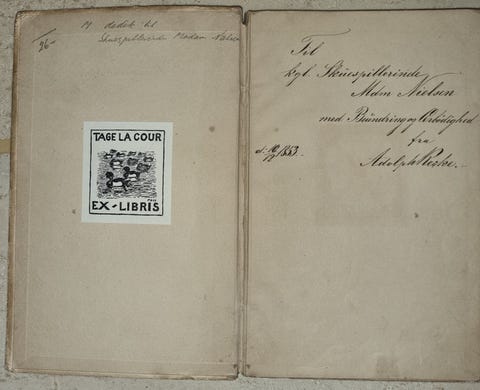 26-
dedik til
Skuespillerinde Madam Nielsen
TAGE LA COUR
EX-LIBRIS
Til
kgl. Skuespillerinde
Mdm Nielsen
med Beundring og Ærbødighed
fra
Adolph
1853.